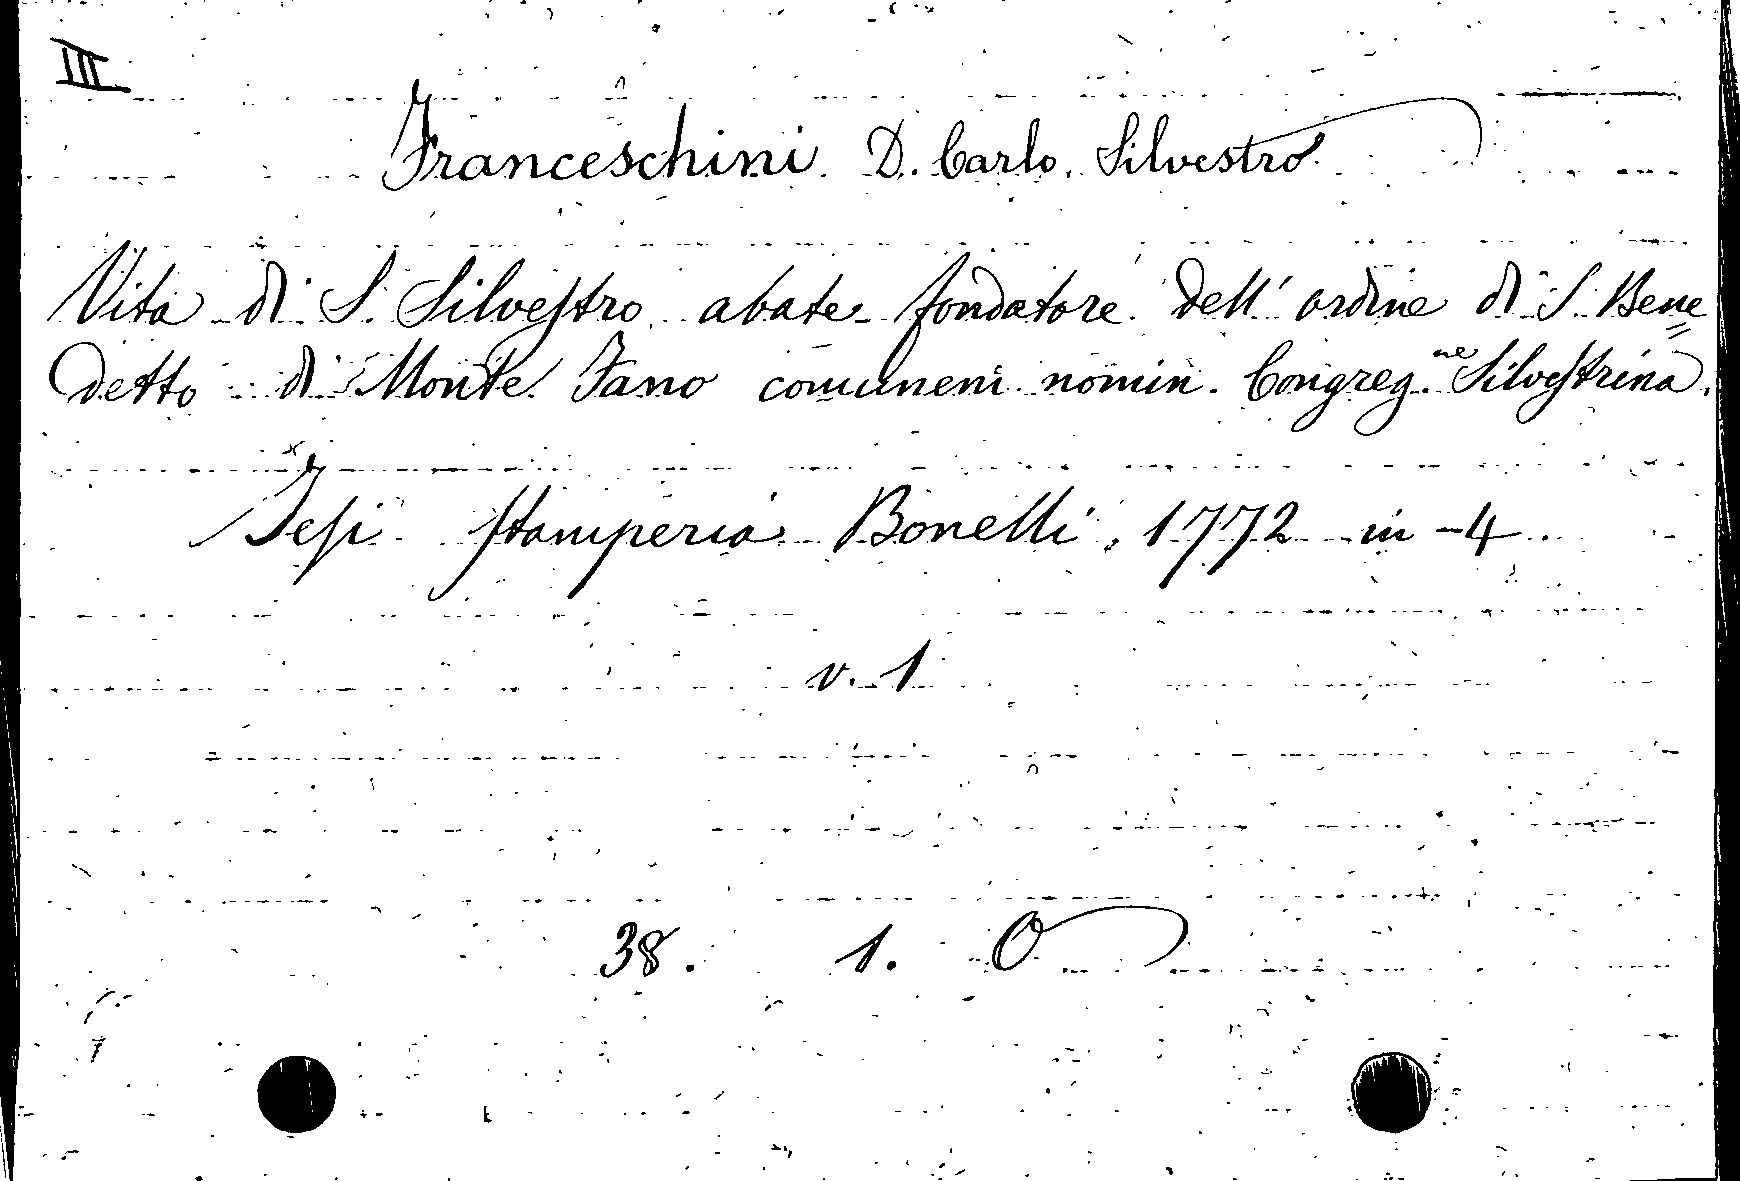 III
Franceschini D. Carlo Silvestro
Vita di S. Silvestro abate fondatore dell' ordine di S. Bene=
detto di Monte Fano comunem nomin. Congreg.ne Silvestrina.
Jesi Stamperia Bonelli, 1772 in-4.
v. 1
38. 1. O